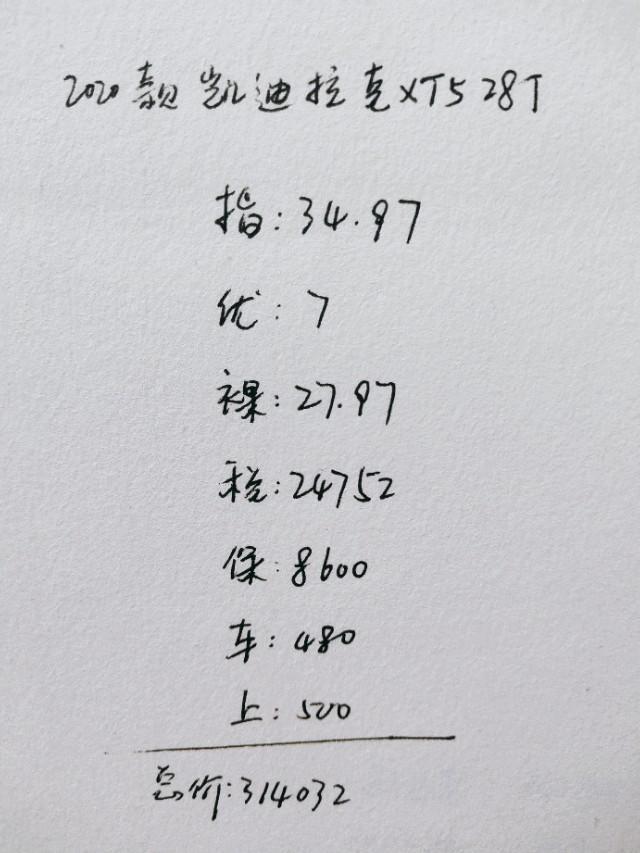 2020款 凯迪拉克XT5 28T
指:34.97
优:7
裸:27.97
税:24752
保:8600
车:480
上:500
总价:314032